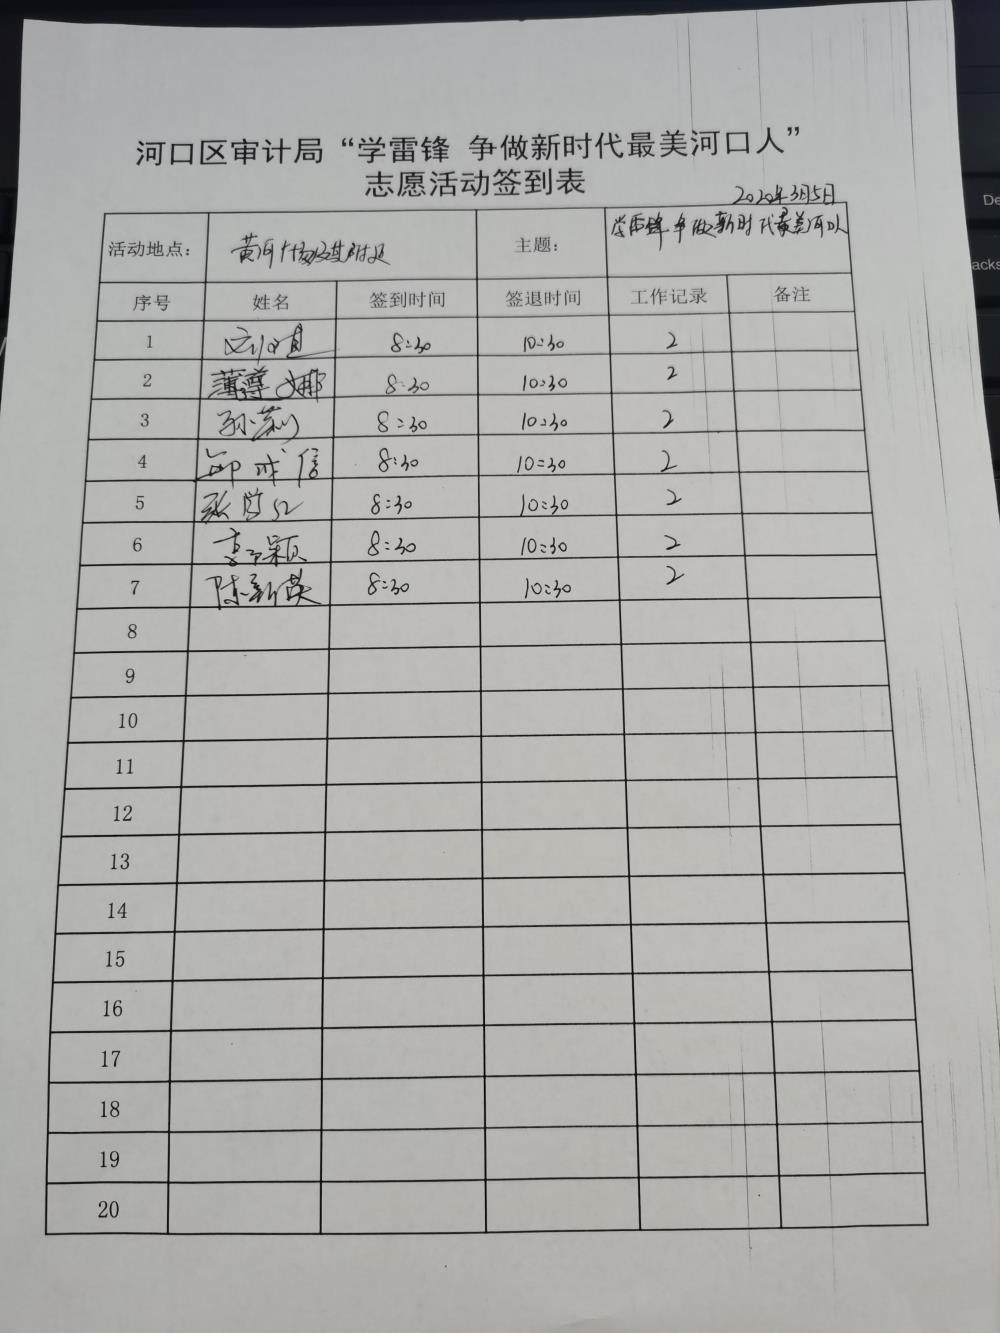 河口区审计局“学雷锋 争做新时代最美河口人”
志愿活动签到表
2020年3月5日
活动地点： 黄河广场及其附近 主题： 学雷锋 争做新时代最美河口人
序号 姓名 签到时间 签退时间 工作记录 备注
1 8:30 10:30 2
2 薄尊娜 8:30 10:30 2
3 孙莉 8:30 10:30 2
4 8:30 10:30 2
5 8:30 10:30 2
6 8:30 10:30 2
7 陈新英 8:30 10:30 2
8
9
10
11
12
13
14
15
16
17
18
19
20
De
acks